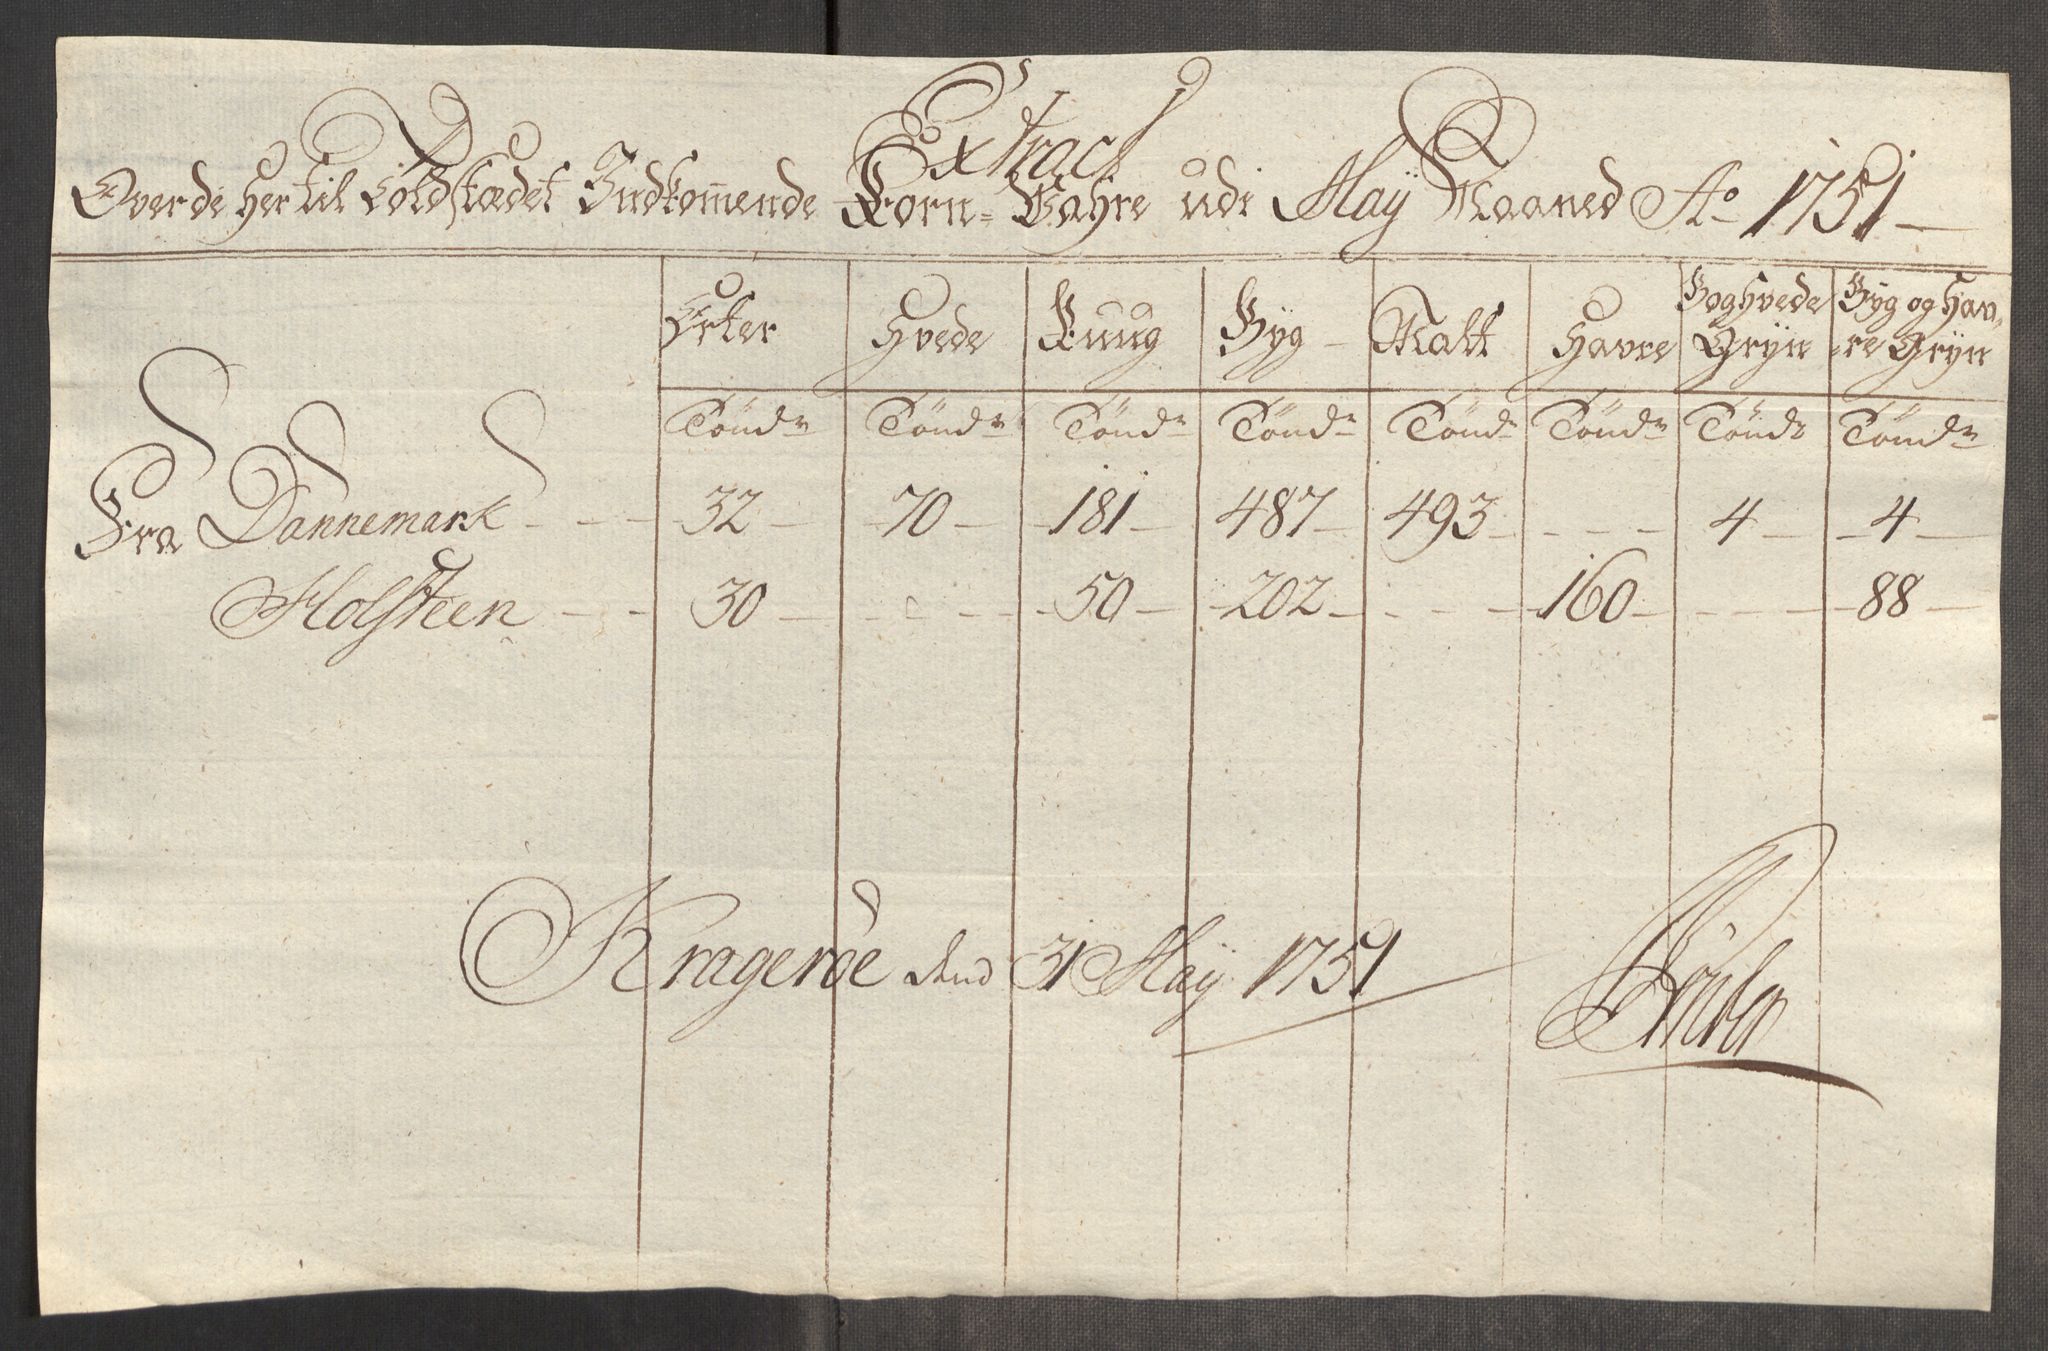 Extract
Over de Her til Toldstædet Indkom̄ende Korn=Vahre udi Maÿ Maaned Ao 1751
Erter Hvede Ruug Bÿg Malt Havre BogHvede Grÿn Bÿg og Hav=re Grÿn
Töndr Töndr Töndr Töndr Töndr Töndr Töndr Töndr
Fra Dannemark - - - 32 - 70 - 181 - 487 - 493 - - - - 4 - 4 -
Holsteen - - - 30 - - - - 50 - 202 - - - - 160 - - - - 88 -
Krageröe dend 31 Maÿ 1751